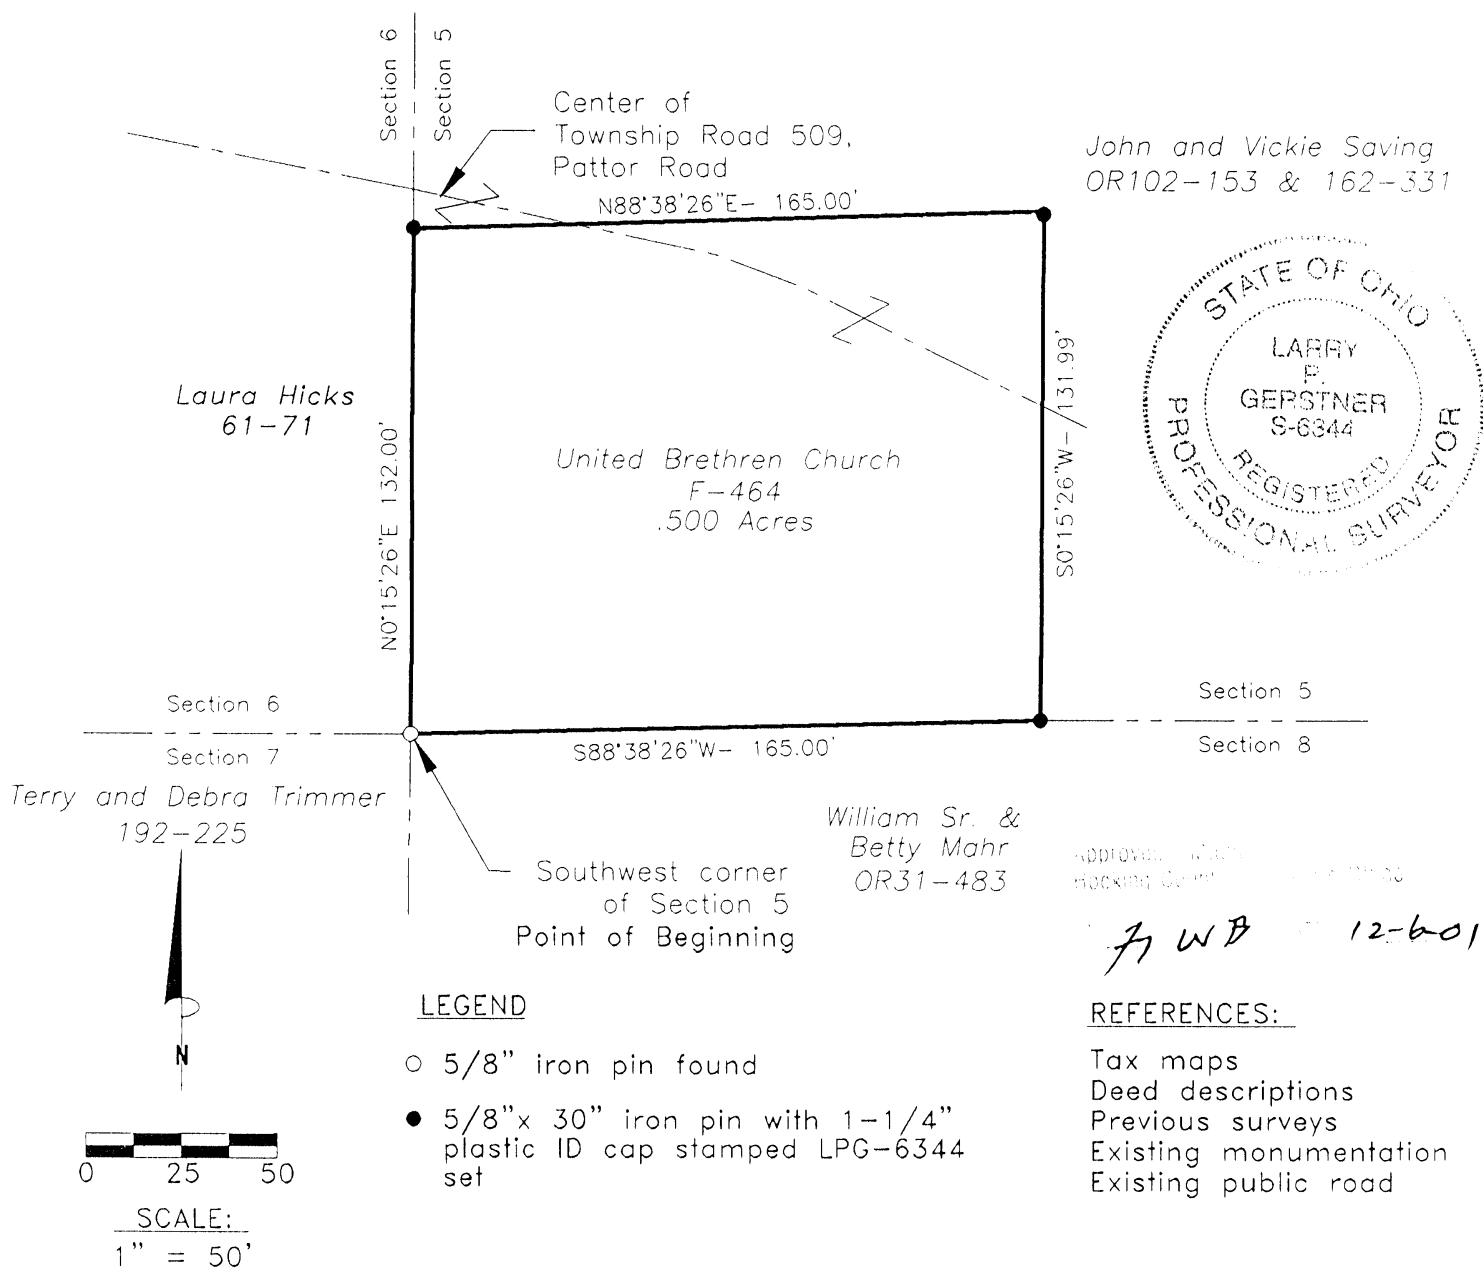 Section 6
Section 5
Center of
Township Road 509,
Pattor Road
John and Vickie Saving
OR102-153 & 162-331
N88°38'26"E- 165.00'
STATE OF OHIO
LARRY
P.
GERSTNER
S-6344
REGISTERED
PROFESSIONAL SURVEYOR
Laura Hicks
61-71
N0°15'26"E 132.00'
United Brethren Church
F-464
.500 Acres
S0°15'26"W- 131.99'
Section 6
Section 7
Section 5
Section 8
S88°38'26"W- 165.00'
Terry and Debra Trimmer
192-225
William Sr. &
Betty Mahr
OR31-483
Southwest corner
of Section 5
Point of Beginning
Approved
Hocking
12-6-01
N
LEGEND
5/8" iron pin found
5/8"x 30" iron pin with 1-1/4"
plastic ID cap stamped LPG-6344
set
REFERENCES:
Tax maps
Deed descriptions
Previous surveys
Existing monumentation
Existing public road
0 25 50
SCALE:
1" = 50'